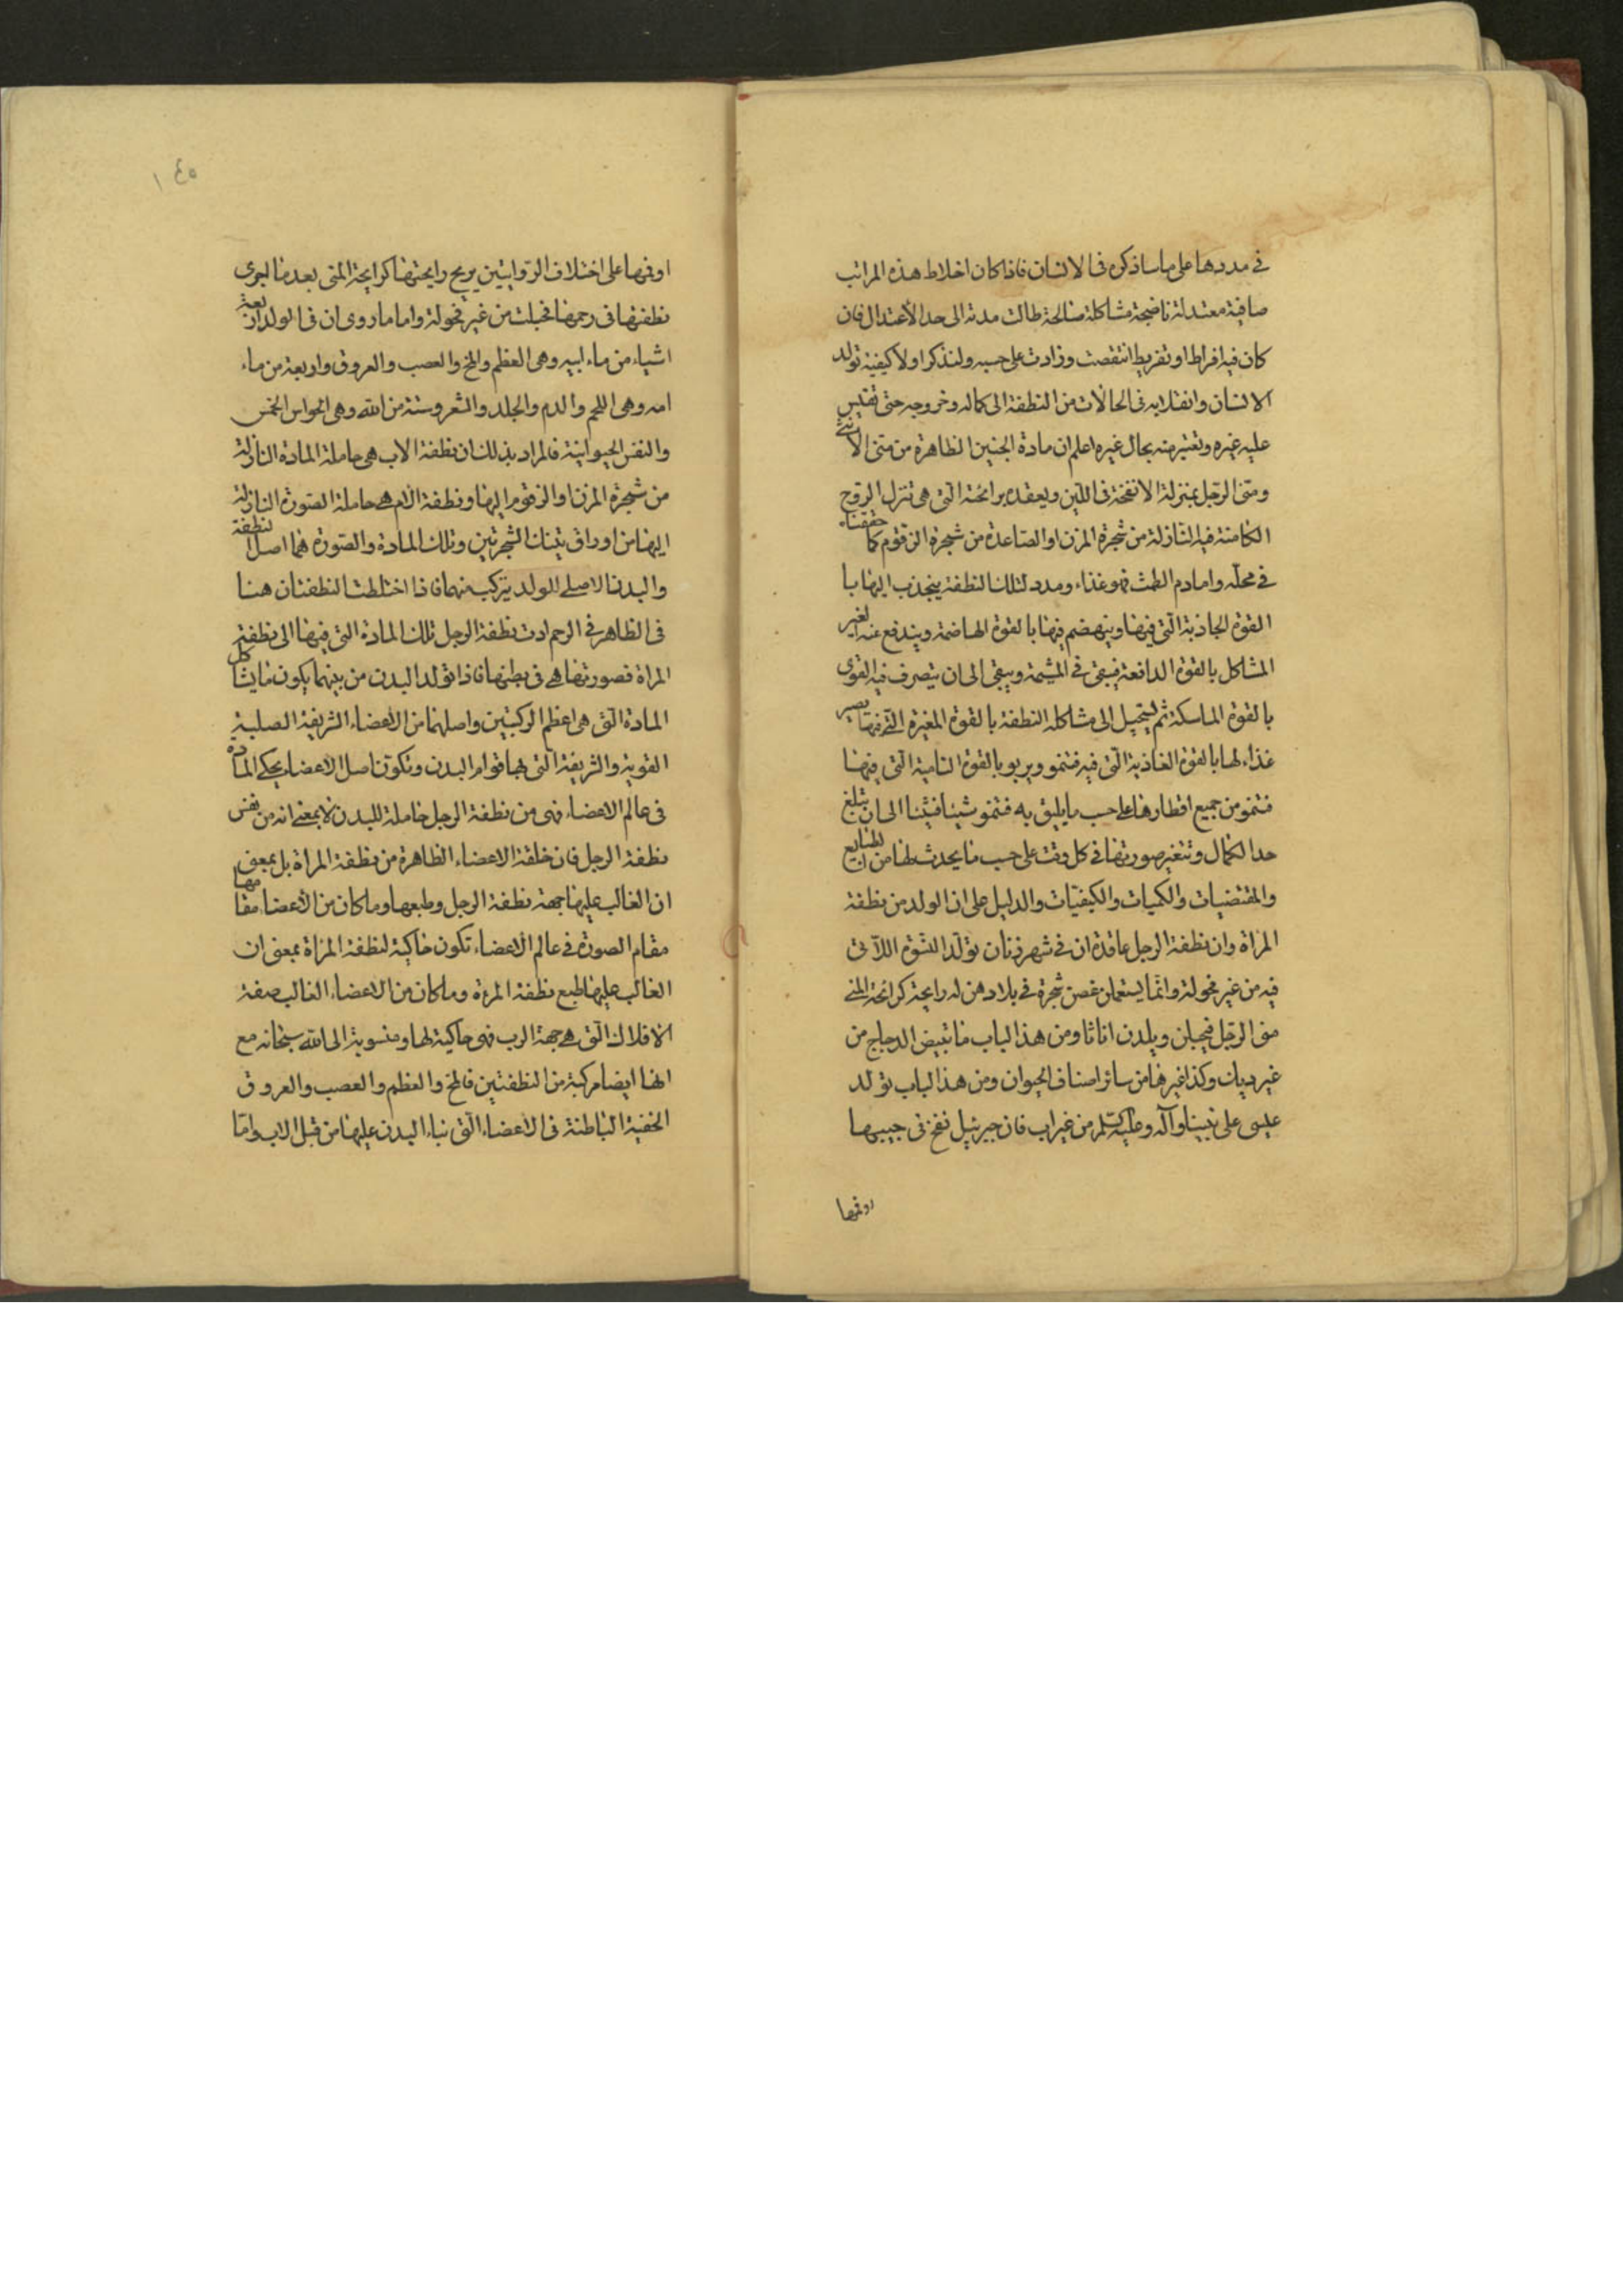 في مددها على ما ساذكره في الانسان فاذا كان اخلاط هذه المراتب
صافية معتدلة ناضجة مشاكلة صالحة طالت مدته الى حد الأعتدال فان
كان فيه افراط او تفريط انتقصت وزادت على حسبه ولنذكر اولا كيفية تولد
الانسان وانقلابه في الحالات من النطفة الى كماله وخروجه حتى تقيس
عليه غيره وتعتبر منه بحال غيره اعلم ان مادة الجنين الظاهرة من منى الانثى
ومنى الرجل بمنزلة الانفخة في اللبن ويعقده برائحته التى هى تنزل الروح
الكامنة فيه النازلة من شجرة المزن او الصاعدة من شجرة الزقوم كما حققناه
في محله واما دم الطمث فهو غذاء ومدد لتلك النطفة ينجذب اليها با
القوة الجاذبة الّتي فيها وينهضم فيها بالقوة الهاضمة ويندفع عنه الغير
المشاكل بالقوة الدافعة فيبقى في المشيمة ويبقى الى ان يتصرف فيه القوى
بالقوة الماسكة ثم يستحيل الى مشاكله النطفة بالقوة المغيرة الّتي فيها تصير
غذاء لها بالقوة الغاذية الّتي فيه فتنمو ويربو بالقوة النامية الّتي فيها
فتنمو من جميع اقطارها على حسب ما يليق به فتنمو شيئا فشيئا الى ان تبلغ
حد الكمال وتتغير صورتها في كل وقت على حسب ما يحدث لها من الطبايع
والمقتضيات والكميات والكيفيّات والدليل على ان الولد من نطفة
المراة وان نطفة الرجل عاقدة ان في شهر زنان تولد النسوة اللآتى
فيه من غير فحولة وانّما يستعملن غصن شجرة في بلادهن له رايحة كرائحة المنى
منى الرجل فيحبلن ويلدن اناثا ومن هذا الباب ما تبيض الدجاج من
غير ديك وكذا غيرها من سائر اصناف الحيوان ومن هذا الباب تولد
عليى على نبينا وآله وعليه السّلم من غير اب فان جبرئيل نفخ في جيبها
او فمها
١٤٥
او فمها على اختلاف الروايتين بريح رايحتها كرايحة المنى بعد ما اجرى
نطفتها في رحمها فحبلت من غير فحولة واما ما روى ان في الولد اربعة
اشياء من ماء ابيه وهى العظم والمخ والعصب والعروق واربعة من ماء
امه وهى اللحم والدم والجلد والشعر وستة من الله وهى الحواس الخمس
والنفس الحيوانية فالمراد بذلك ان نطفة الاب هى حاملة المادة النازلة
من شجرة المزن او الزقوم اليها ونطفة الام هى حاملة الصورة النازلة
اليها من اوراق تينك الشجرتين وتلك المادة والصّورة هما اصل النطفة
والبدن الاصلى للولد يتركب منهما فاذا اختلطت النطفتان هنا
في الظاهر في الرحم ادت نطفة الرجل تلك المادة التي فيها الى نطفة
المراة فصورتها هى في بطنها فاذا تولد البدن من بينهما يكون ما يشاكل
المادة الّتى هى اعظم الركنين واصلهما من الاعضاء الشريفة الصلبة
القوية والشريفة الّتى بها قوام البدن وتكون اصل الاعضاء يحكى المادة
في عالم الاعضاء فهى من نطفة الرجل حاملة للبدن لا بمعنى انه من نفس
نطفة الرجل فان خلقة الاعضاء الظاهرة من نطفة المراة بل بمعنى
ان الغالب عليها جهة نطفة الرجل وطبعها وما كان من الأعضاء مقامها
مقام الصورة في عالم الاعضاء تكون حاكية لنطفة المراة بمعنى ان
الغالب عليها طبع نطفة المرءة وما كان من الاعضاء الغالب صفة
الافلاك الّتي هى جهة الرب فهى حاكية لها ومنسوبة الى الله سبحانه مع
انها ايضا مركبة من النطفتين فالمخ والعظم والعصب والعروق
الخفية الباطنة في الاعضاء الّتي بناء البدن عليها من قبل الاب وامّا